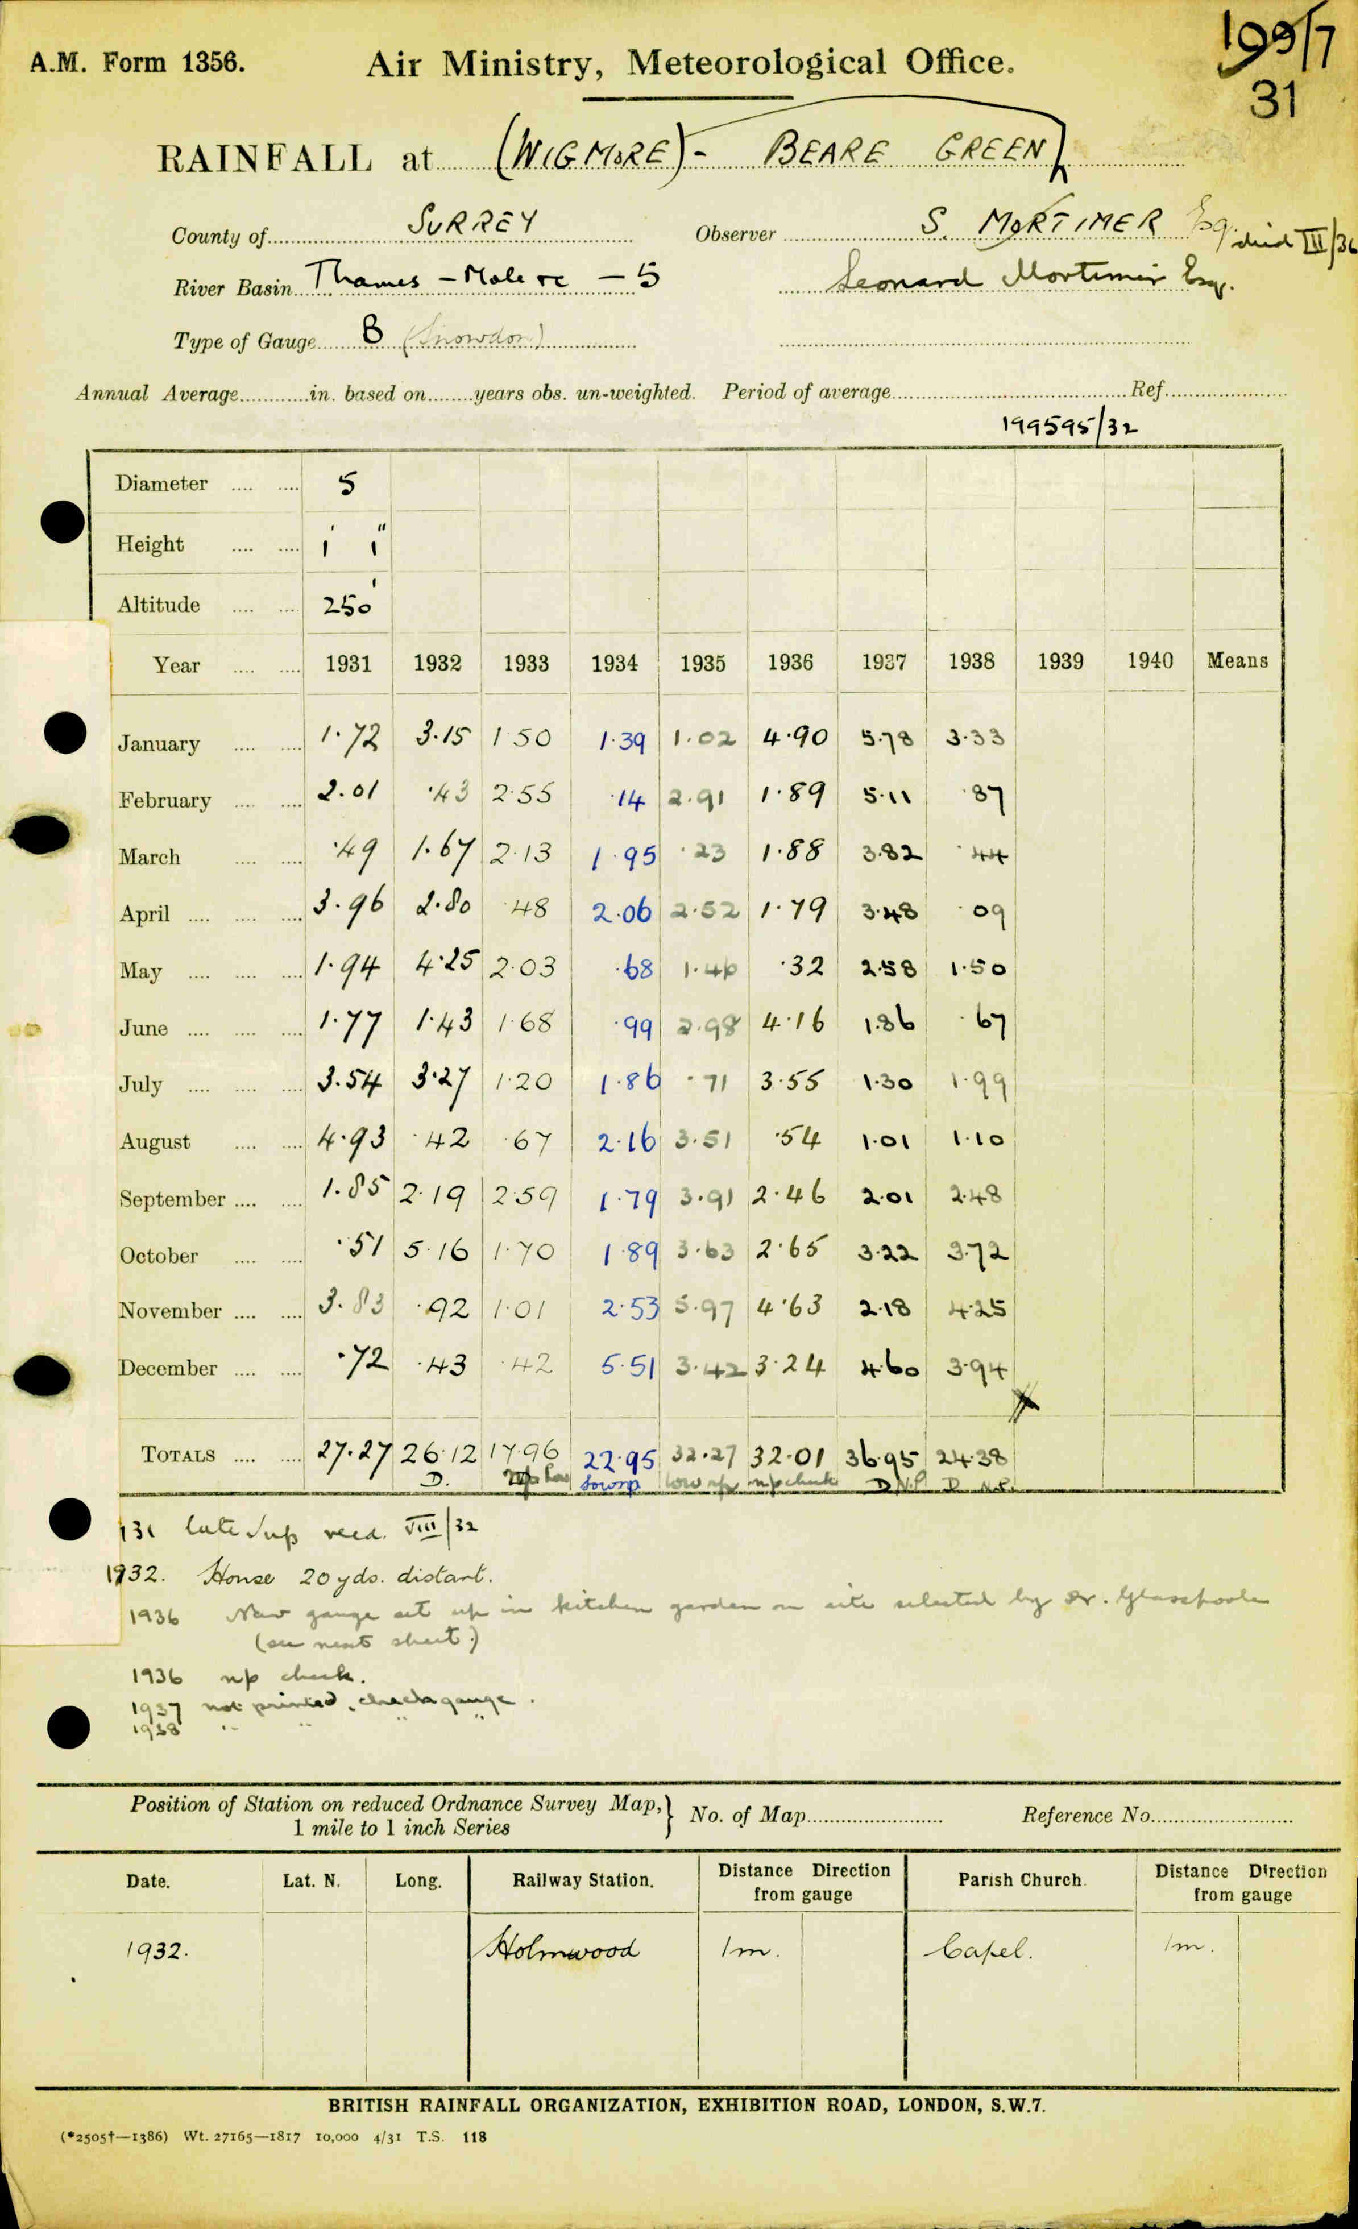 A.M. Form 1356. Air Ministry, Meteorological Office. 199/7
31
RAINFALL at (WIGMORE) - BEARE GREEN
County of SURREY Observer S. MORTIMER Esq. died III/36
River Basin Thames - Mole &c - 5 Leonard Mortimer Esq.
Type of Gauge B (Snowdon)
Annual Average in. based on years obs. un-weighted. Period of average Ref.
199595/32
Diameter 5
Height 1' 1"
Altitude 250'
Year 1931 1932 1933 1934 1935 1936 1937 1938 1939 1940 Means
January 1.72 3.15 1.50 1.39 1.02 4.90 5.78 3.33
February 2.01 .43 2.55 .14 2.91 1.89 5.11 .87
March .49 1.67 2.13 1.95 .23 1.88 3.82 .44
April 3.96 2.80 .48 2.06 2.52 1.79 3.48 .09
May 1.94 4.25 2.03 .68 1.46 .32 2.58 1.50
June 1.77 1.43 1.68 .99 2.98 4.16 1.86 .67
July 3.54 3.27 1.20 1.86 .71 3.55 1.30 1.99
August 4.93 .42 .67 2.16 3.51 .54 1.01 1.10
September 1.85 2.19 2.59 1.79 3.91 2.46 2.01 2.48
October .51 5.16 1.70 1.89 3.63 2.65 3.22 3.72
November 3.83 .92 1.01 2.53 5.97 4.63 2.18 4.25
December .72 .43 .42 5.51 3.42 3.24 4.60 3.94
TOTALS 27.27 26.12 17.96 22.95 32.27 32.01 36.95 24.38
D. np low low np low np np check D N.P. D N.P.
'31 late Sup recd. VIII/32
1932. House 20 yds. distant.
1936 New gauge set up in kitchen garden on site selected by Dr. Glasspoole
(see next sheet.)
1936 np check.
1937 not printed, check gauge.
1938 " " " "
Position of Station on reduced Ordnance Survey Map, 1 mile to 1 inch Series } No. of Map Reference No.
Date. Lat. N. Long. Railway Station. Distance Direction from gauge Parish Church. Distance Direction from gauge
1932. Holmwood 1m. Capel. 1m.
BRITISH RAINFALL ORGANIZATION, EXHIBITION ROAD, LONDON, S.W.7.
(*2505†—1386) Wt. 27165—1817 10,000 4/31 T.S. 118